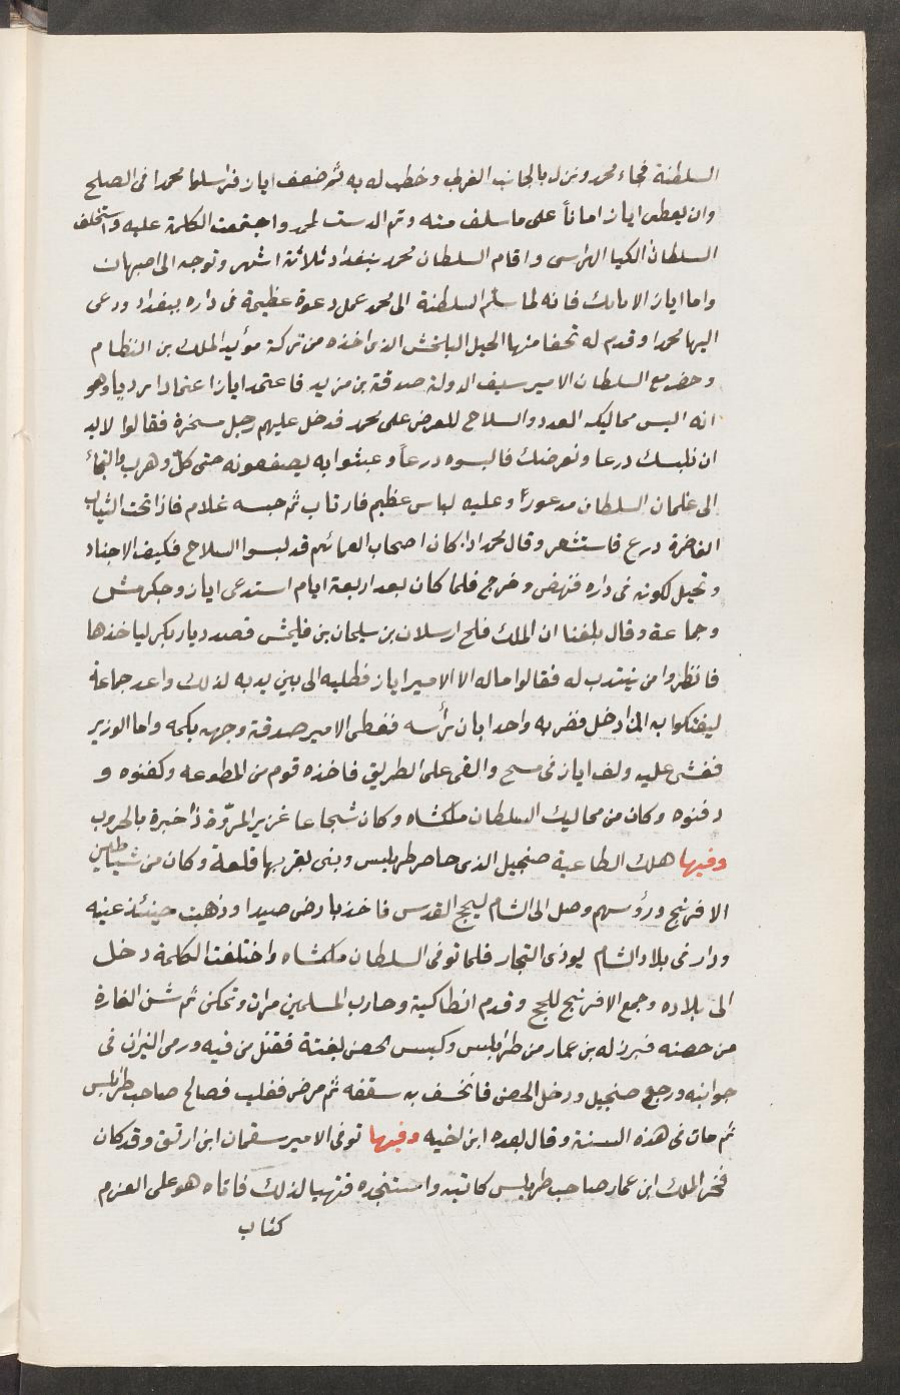 السلطنة فجاء محمد ونزل بالجانب الغربى وخطب له به ثم ضعف اياز فراسلوا محمدا فى الصلح
وان يعطى اياز اماناً على ما سلف منه وتم الدست لمحمد واجتمعت الكلمة عليه واستخلف
السلطان الكيا الهراسى واقام السلطان محمد ببغداد ثلاثة اشهر وتوجه الى اصبهان
واما اياز الاتابك فانه لما سلّم السلطنة الى محمد عمل دعوة عظيمة فى داره ببغداد ودعى
اليها محمدا وقدم له تحفا منها الحبل البلخش الذى اخذه من تركة مؤيد الملك بن النظام
وحضر مع السلطان الامير سيف الدولة صدقة بن مزيد فاعتمد اياز اعتمادا رديا وهو
انه البس مماليكه العدد والسلاح للعرض على محمد فدخل عليهم رجل مسخرة فقالوا لا بد
ان نلبسك درعا ونعرضك فالبسوه درعاً وعبثوا به يصفعونه حتى كلّ وهرب والتجاء
الى غلمان السلطان مدعورا وعليه لباس عظيم فارتاب ثم جسه غلام فاذا تحت الثياب
الفاخرة درع فاستشعر وقال محمد اذا كان اصحاب العمائم قد لبسوا السلاح فكيف الاجناد
وتخيل لكونه فى داره فنهض وخرج فلما كان بعد اربعة ايام استدعى اياز وجكرمش
وجماعة وقال بلغنا ان الملك قلج ارسلان بن سليمان بن قيلمش قصد ديار بكر لياخذها
فانظروا من ينتدب له فقالوا ما له الا الامير اياز فطلبه الى بين يديه لذلك واعد جماعة
ليفتكوا به اذا دخل فضربه واحد ابان رأسه فغطى الامير صدقة وجهه بكمه واما الوزير
فغشى عليه ولف اياز فى مسح والقى على الطريق فاخذه قوم من المطوعه وكفنوه و
دفنوه وكان من مماليك السلطان ملكشاه وكان شجاعا غزير المروّة ذا خبرة بالحروب
وفيها هلك الطاغية صنجيل الذى حاصر طرابلس وبنى بقربها قلعة وكان من شياطين
الافرنج ورؤسهم وصل الى الشام ليحج القدس فاخذ بارض صيدا وذهبت حينئذ عينه
ودار فى بلاد الشام يوذى التجار فلما توفى السلطان ملكشاه واختلفت الكلمة دخل
الى بلاده وجمع الافرنج للحج وقدم انطاكية وحارب المسلمين مرات وتمكن ثم شن الغارة
من حصنه فبرز له بن عمار من طرابلس وكبس الحصن بغتة فقتل من فيه ورمى النيران فى
جوانبه ورجع صنجيل ودخل الحصن فانخسف به سقفه ثم مرض فغلب فصالح صاحب طرابلس
ثم مات فى هذه السنة وقال بعده ابن اخيه وفيها توفى الامير سقمان ابن ارتق وقد كان
فخر الملك ابن عمار صاحب طرابلس كاتبه واستنجده فتهيا لذلك فاتاه هو على العزم
كتاب